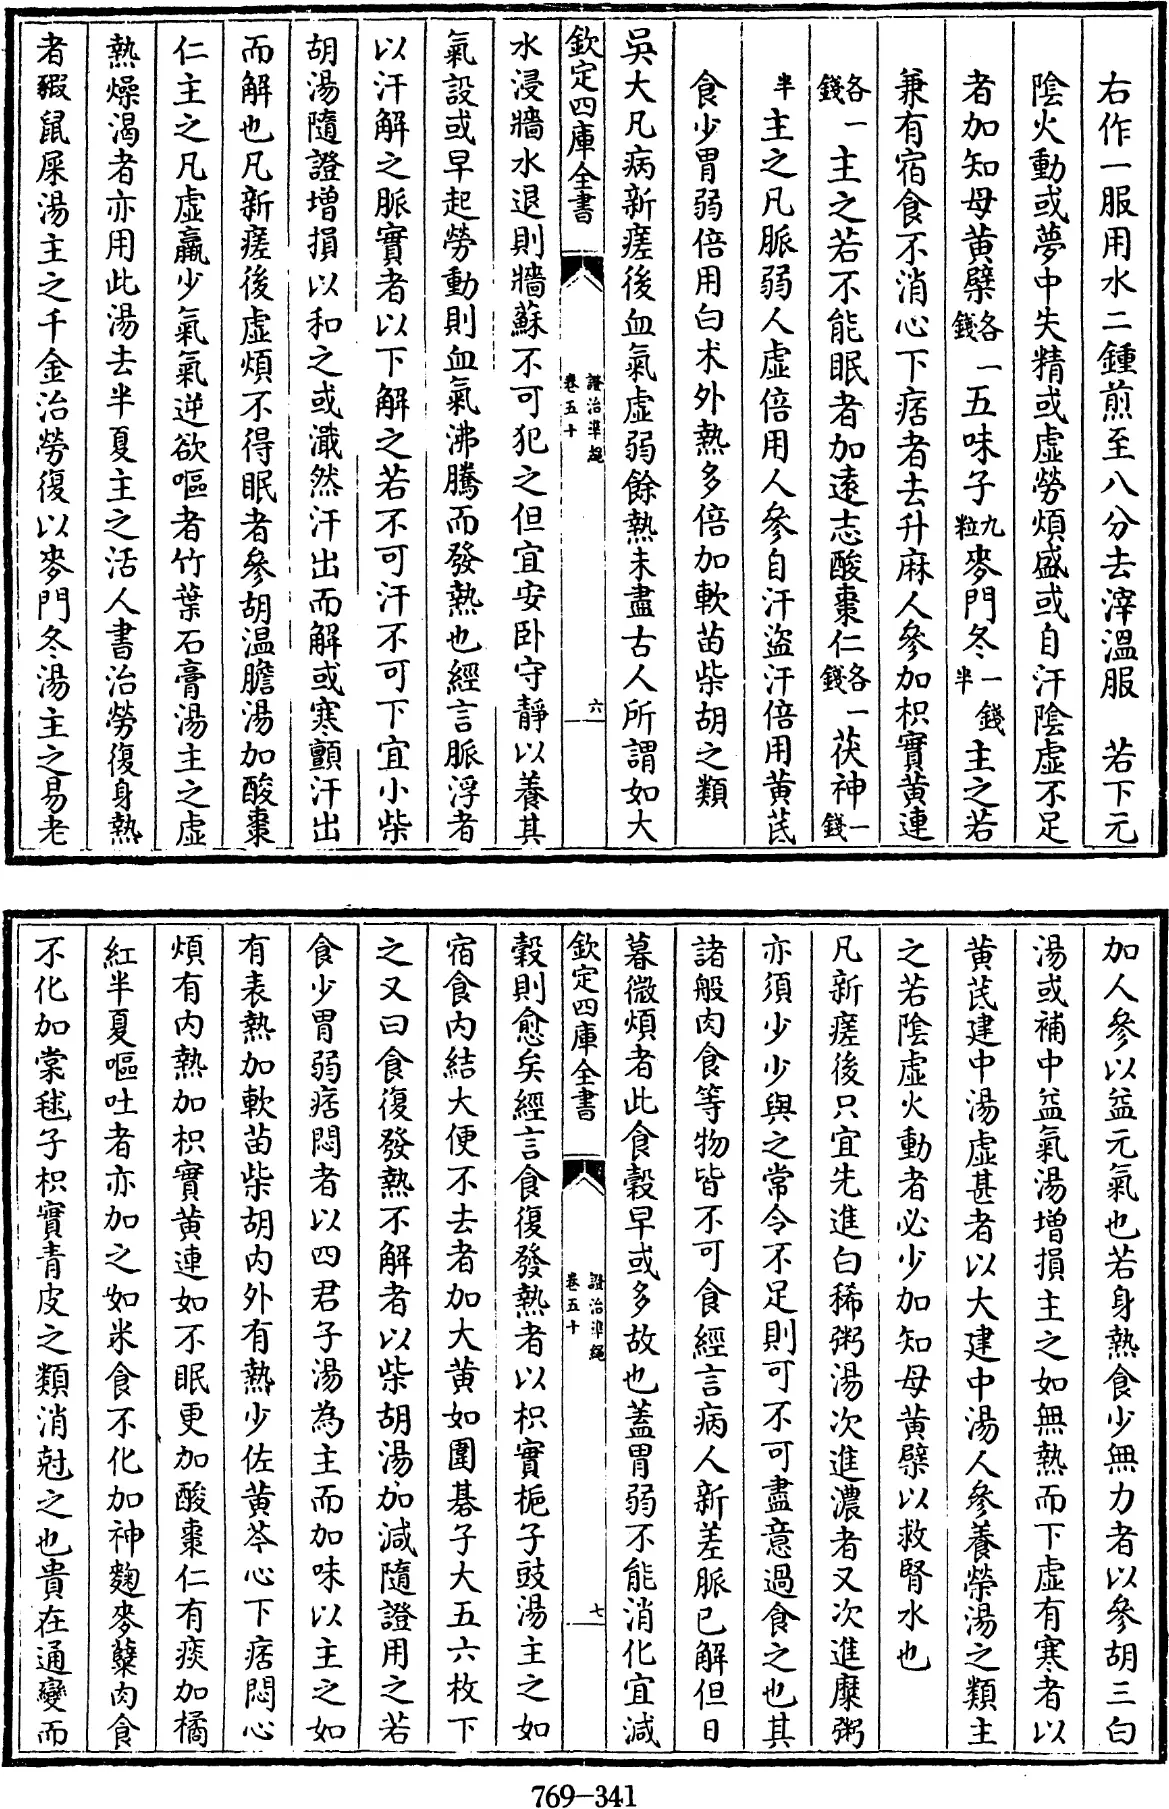 右作一服用水二鍾煎至八分去滓溫服　若下元
陰火動或夢中失精或虛勞煩盛或自汗陰虛不足
者加知母黄檗各一錢五味子九粒麥門冬一錢半主之若
兼有宿食不消心下痞者去升麻人參加枳實黄連
各一錢主之若不能眠者加遠志酸棗仁各一錢茯神一錢
半主之凡脈弱人虛倍用人參自汗盜汗倍用黄芪
食少胃弱倍用白朮外熱多倍加軟苗柴胡之類
吳大凡病新瘥後血氣虛弱餘熱未盡古人所謂如大
欽定四庫全書
證治準繩
卷五十
六
水浸牆水退則牆蘇不可犯之但宜安卧守靜以養其
氣設或早起勞動則血氣沸騰而發熱也經言脈浮者
以汗解之脈實者以下解之若不可汗不可下宜小柴
胡湯隨證增損以和之或濈然汗出而解或寒顫汗出
而解也凡新瘥後虛煩不得眠者參胡温膽湯加酸棗
仁主之凡虛羸少氣氣逆欲嘔者竹葉石膏湯主之虛
熱燥渴者亦用此湯去半夏主之活人書治勞復身熱
者豭鼠屎湯主之千金治勞復以麥門冬湯主之易老
加人參以益元氣也若身熱食少無力者以參胡三白
湯或補中益氣湯增損主之如無熱而下虛有寒者以
黄芪建中湯虛甚者以大建中湯人參養榮湯之類主
之若陰虛火動者必少加知母黄檗以救腎水也
凡新瘥後只宜先進白稀粥湯次進濃者又次進糜粥
亦須少少與之常令不足則可不可盡意過食之也其
諸般肉食等物皆不可食經言病人新差脈已解但日
暮微煩者此食穀早或多故也蓋胃弱不能消化宜減
欽定四庫全書
證治準繩
卷五十
七
穀則愈矣經言食復發熱者以枳實梔子豉湯主之如
宿食内結大便不去者加大黄如圍碁子大五六枚下
之又曰食復發熱不解者以柴胡湯加減隨證用之若
食少胃弱痞悶者以四君子湯為主而加味以主之如
有表熱加軟苗柴胡内外有熱少佐黄芩心下痞悶心
煩有内熱加枳實黄連如不眠更加酸棗仁有痰加橘
紅半夏嘔吐者亦加之如米食不化加神麴麥糵肉食
不化加棠毬子枳實青皮之類消尅之也貴在通變而
769-341